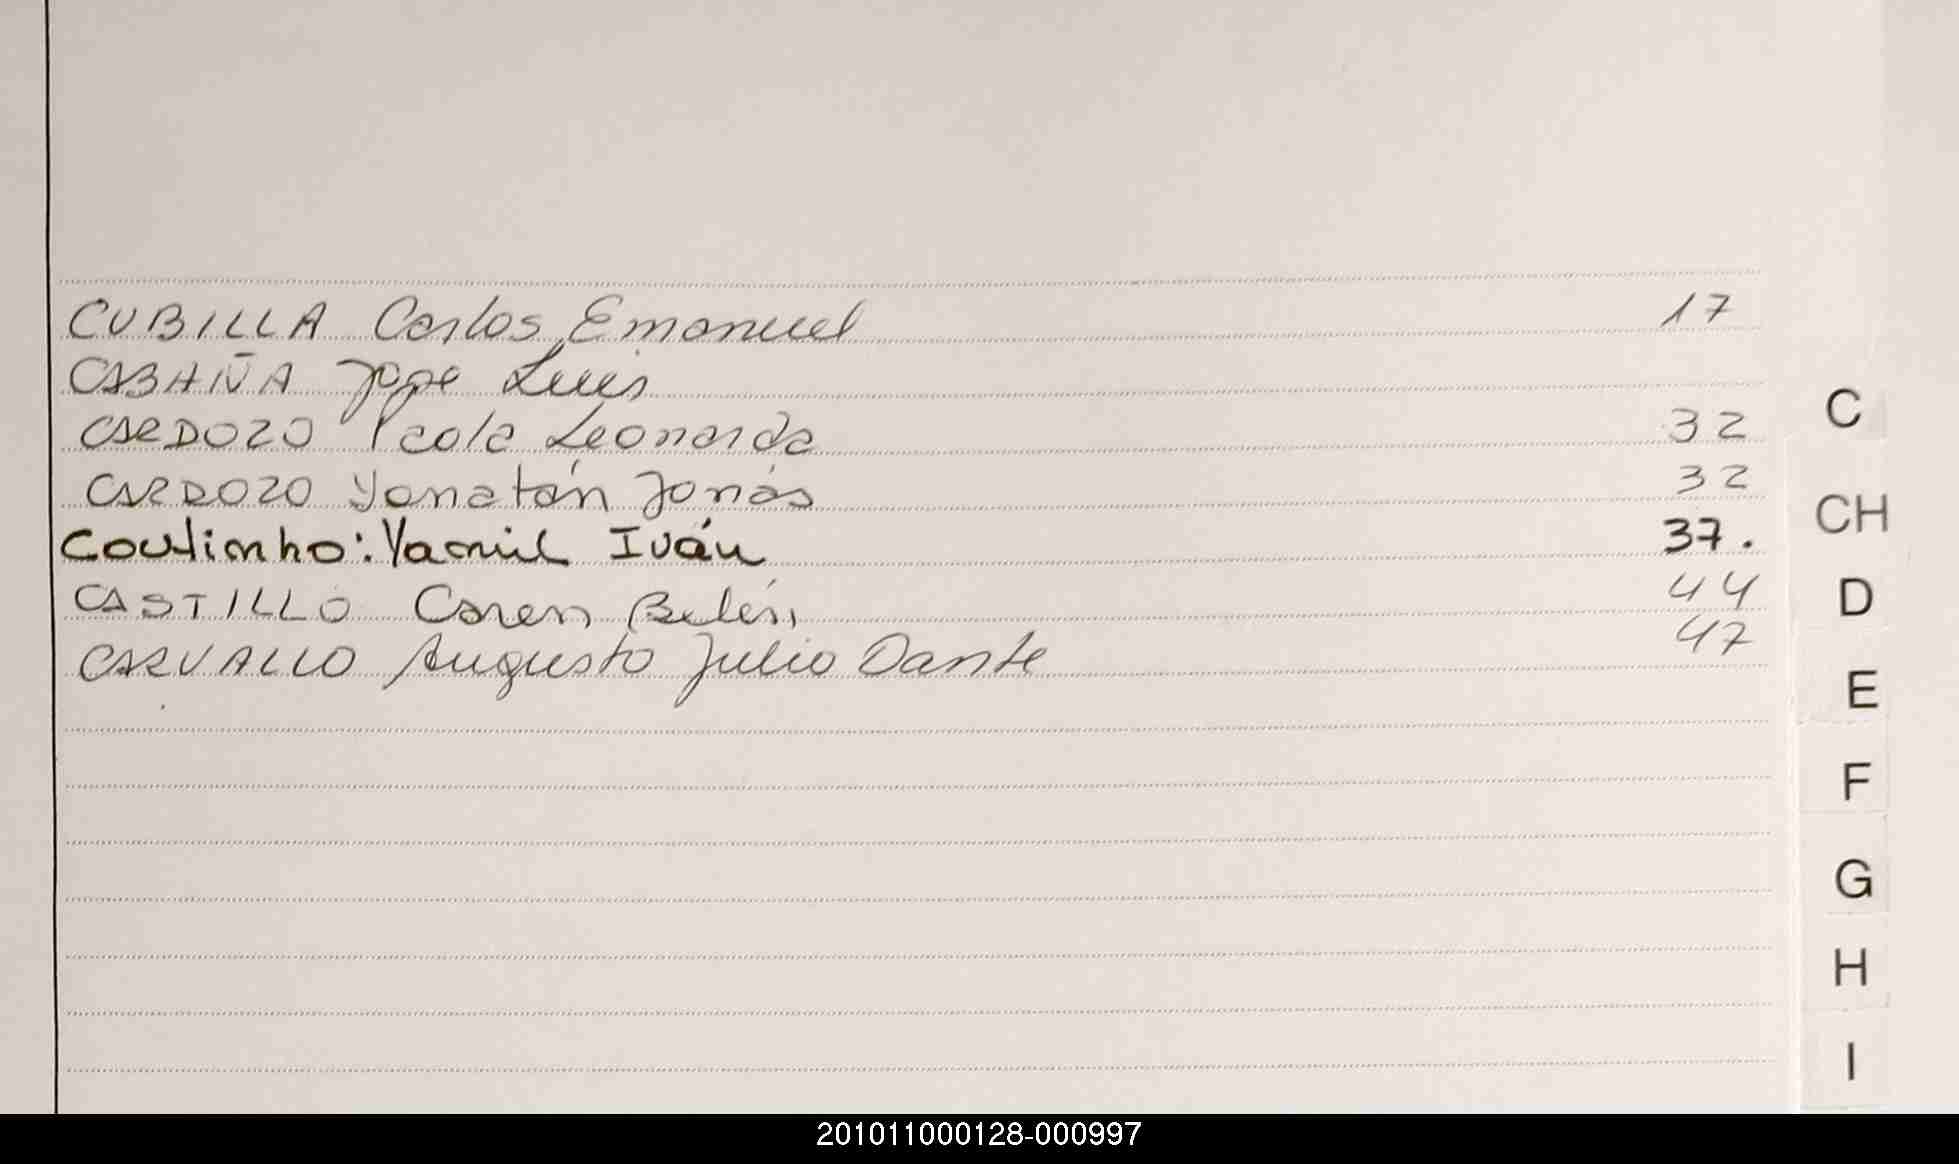 CUBILLA Carlos Emanuel 17
CABAÑA Jose Luis
CARDOZO Paola Leonarda 32
CARDOZO Yonatán Jonás 32
Coutinho: Yamil Iván 37.
CASTILLO Caren Belén 44
CARVALLO Augusto Julio Dante 47
C
CH
D
E
F
G
H
I
201011000128-000997